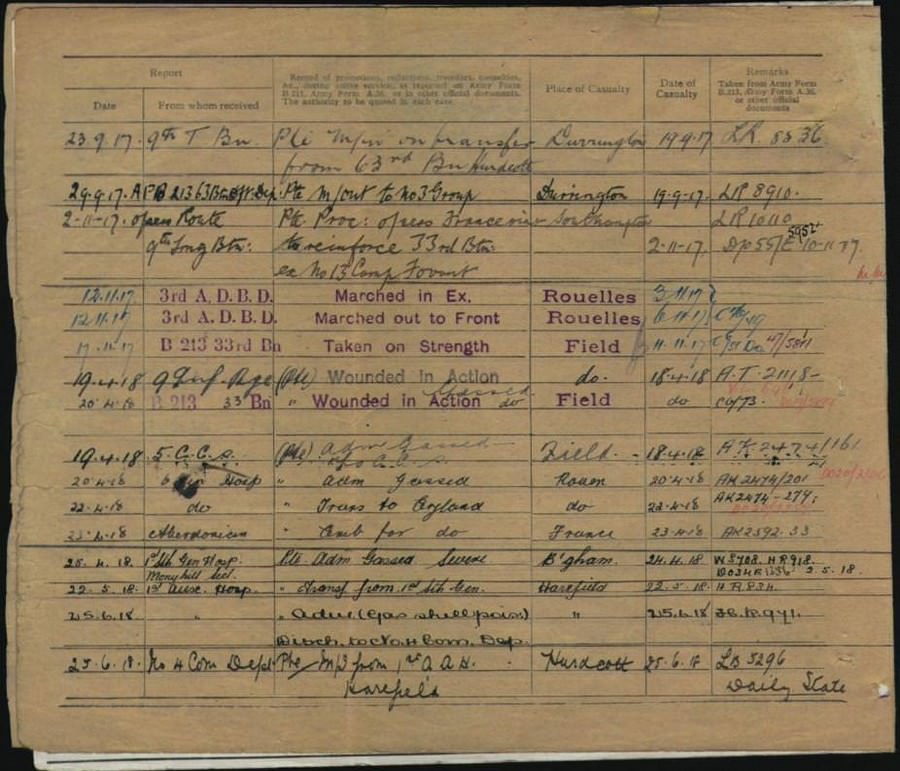 Report
Record of promotions, reductions, transfers, casualties, &c., during active service, as reported on Army Form B.213, Army Form A.36, or in other official documents. The authority to be quoted in each case.
Place of Casualty
Date of Casualty
Remarks
Taken from Army Form B.213, Army Form A.36, or other official documents
Date From whom received
23.9.17. 9th T Bn. Pte M/in on transfer Durrington 19.9.17 LR. 8336
from 63rd Bn Hurdcott
29.9.17. Pte M/out to No 3 Group Durrington 19-9-17. LR 8910.
2-11-17. Route Pte Proc: o/seas France via Southampton LR 10110
9th Trng Btn: to reinforce 33rd Btn: 2-11-17. 10-11-17
ex No 13 Camp Fovant
12.11.17 3rd A.D.B.D. Marched in Ex. Rouelles 3.11.17
12.11.17 3rd A.D.B.D. Marched out to Front Rouelles 6.11.17
17.11.17 B 213 33rd Bn Taken on Strength Field 11.11.17
19.4.18 (Pte) Wounded in Action do. 18.4.18 A.T. 21118-
20.4.18 B 213 33 Bn " Wounded in Action Gassed do Field do
19.4.18 5 C.C.S. (Pte) Adm Gassed Field. 18.4.18
20.4.18 Hosp " Adm Gassed Rouen 20.4.18 AK2474/201
22.4.18 do " Trans to England do 22.4.18 AK2474-279
23.4.18 Aberdonian " Emb for do France 23.4.18 AK2592.33
25.4.18. 1st Sth Gen Hosp. Pte Adm Gassed Severe B'gham. 24.4.18 W5708. HR918.
Monyhill Sec. 2.5.18.
22.5.18. 1st Ausc. Hosp. " Transf from 1st Sth Gen. Harefield 22.5.18. HR834.
25.6.18. " " Adm (Gas shell pois:) " 25.6.18 H.R.971.
Disch. to No. 4 Com. Dep.
25.6.18. No 4 Com Depot Pte M/I from 1st A.A.H. Hurdcott 25.6.18 LB 5296
Harefield Daily State